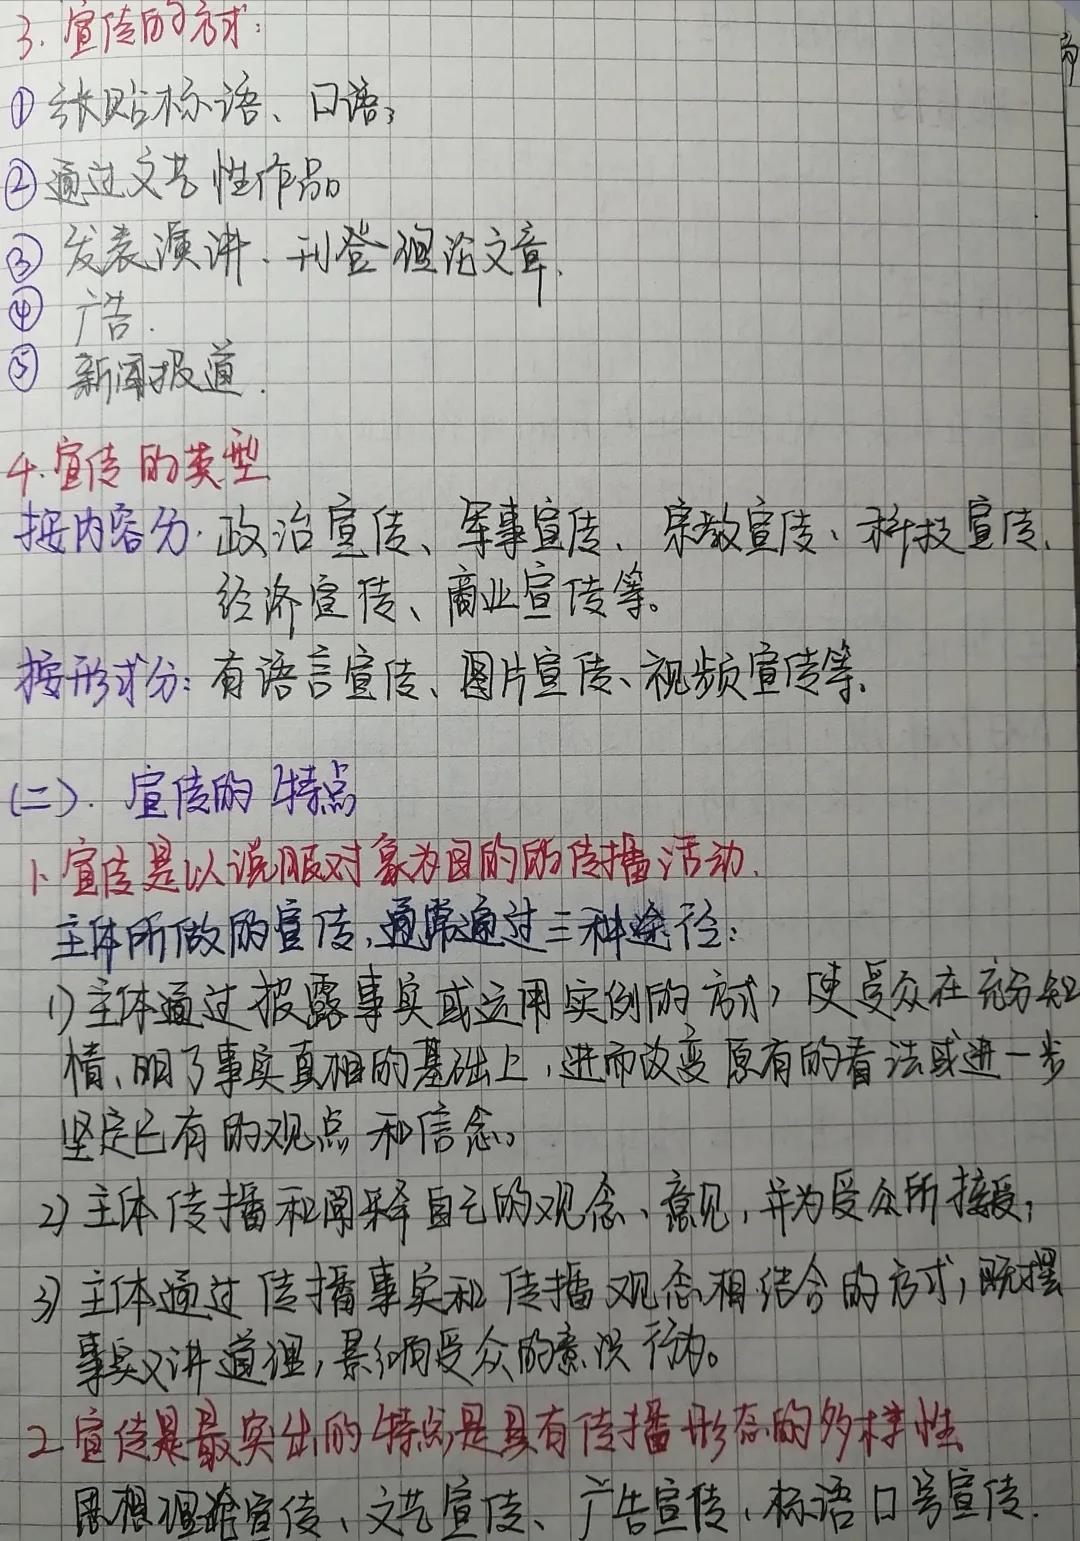 3. 宣传的方式:
① 张贴标语、口语;
② 通过文艺性作品。
③ 发表演讲、刊登理论文章、
④ 广告.
⑤ 新闻报道.
4.宣传的类型
按内容分.政治宣传、军事宣传、宗教宣传、科技宣传、
经济宣传、商业宣传等。
按形式分:有语言宣传、图片宣传、视频宣传等、
(二).宣传的特点
1、宣传是以说服对象为目的的传播活动.
主体所做的宣传,通常通过三种途径:
1)主体通过披露事实或运用实例的方式,使受众在充分知
情、明了事实真相的基础上,进而改变原有的看法或进一步
坚定已有的观点和信念。
2)主体传播和阐释自己的观念、意见,并为受众所接受;
3)主体通过传播事实和传播观念相结合的方式,既摆
事实又讲道理,影响受众的意识行为。
2 宣传是最突出的特点是具有传播形态的多样性
思想理论宣传、文艺宣传、广告宣传、标语口号宣传.